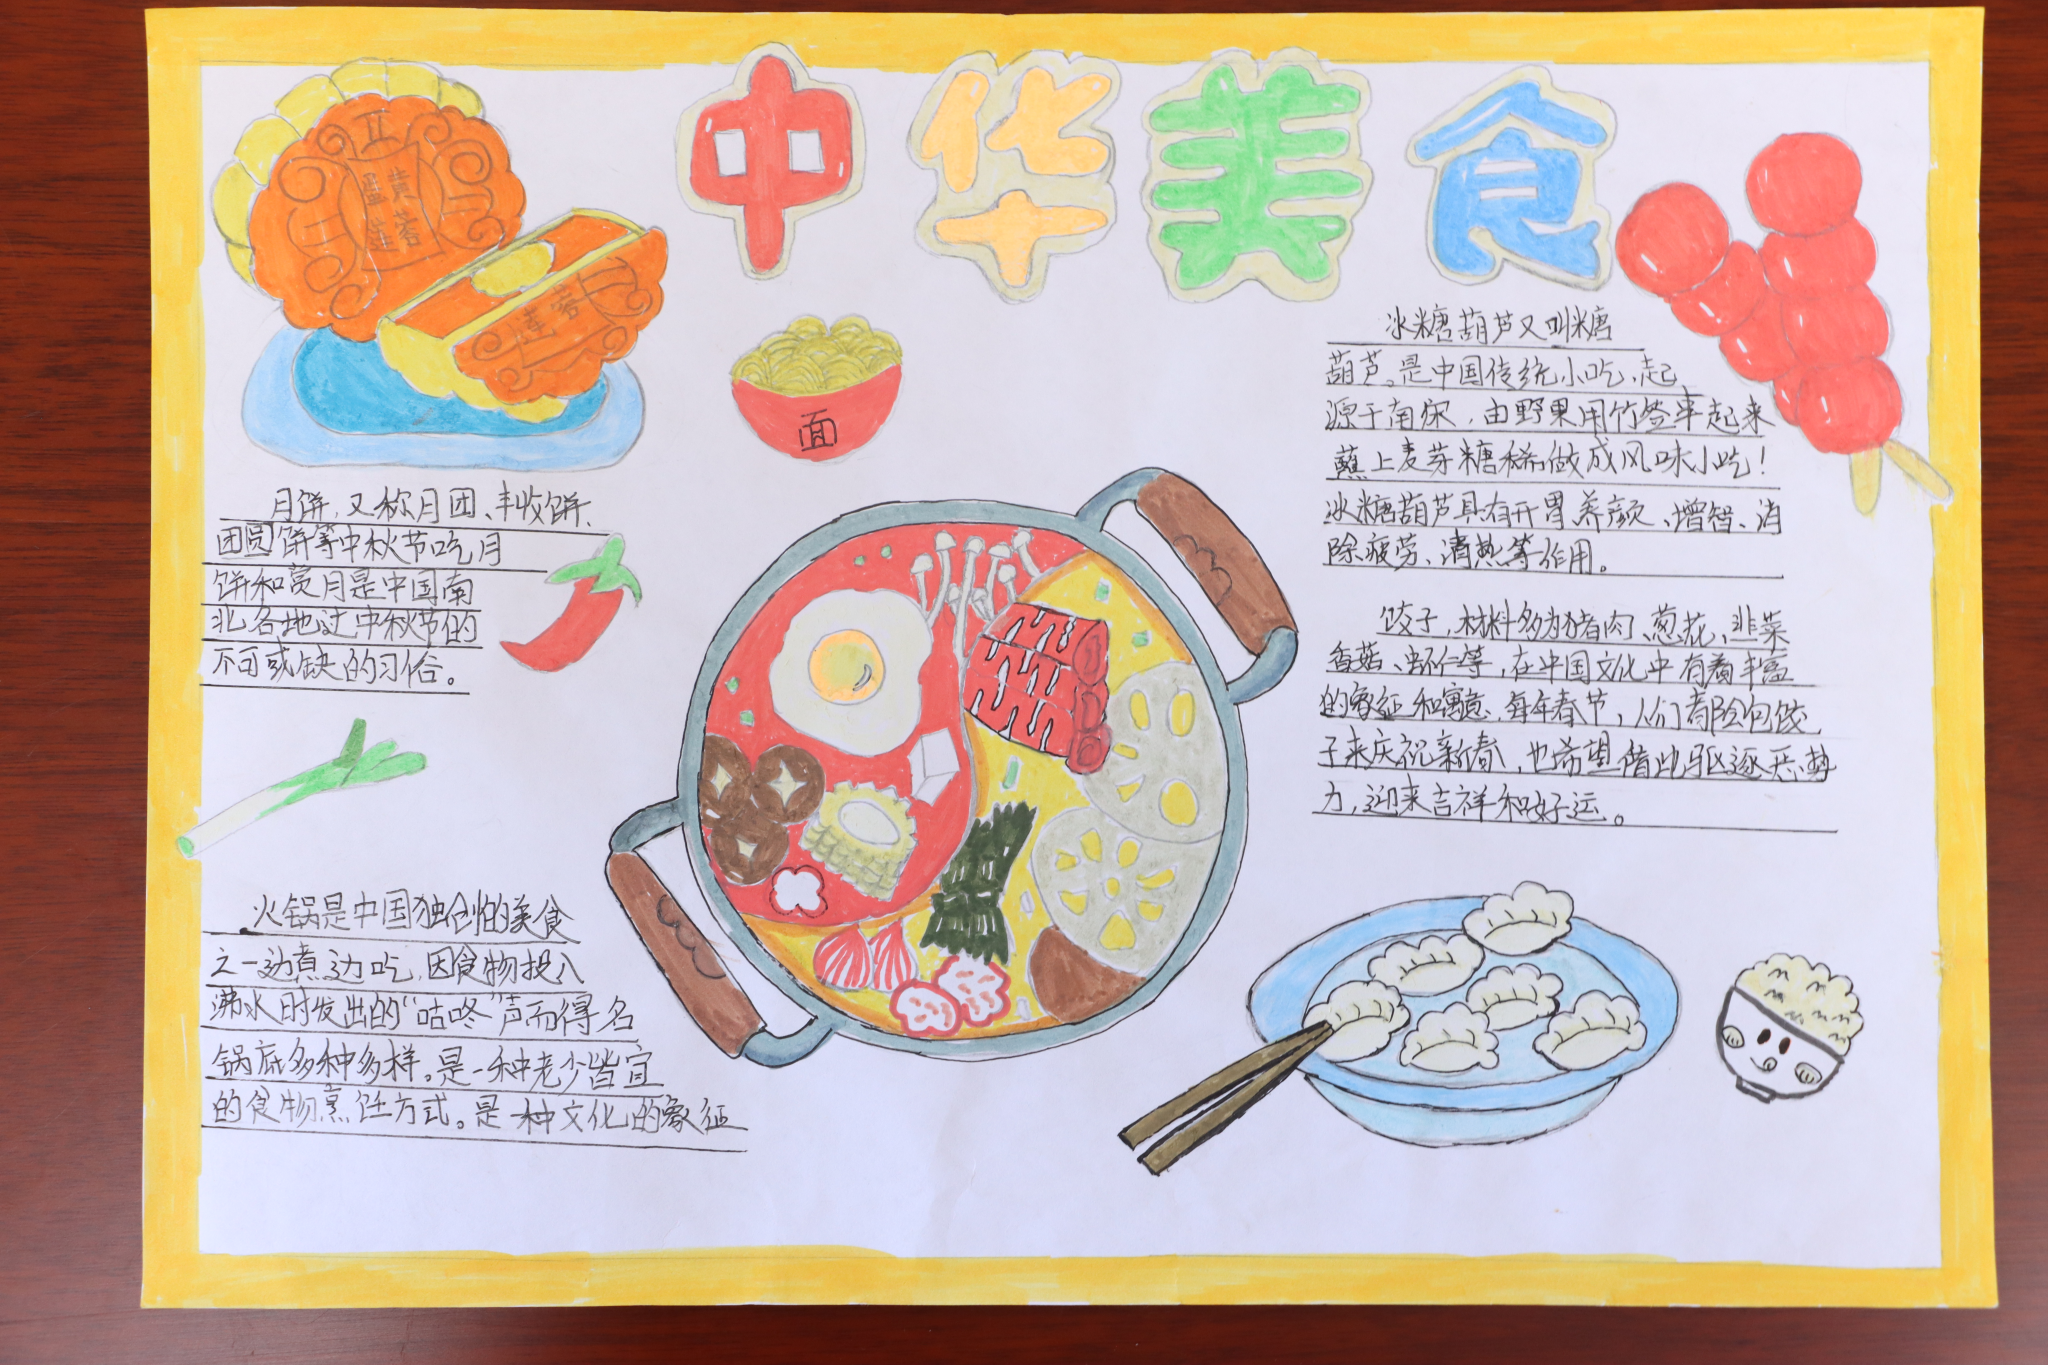 中华美食
蛋黄
莲蓉
莲蓉
面
月饼，又称月团、丰收饼、
团圆饼等中秋节吃月
饼和赏月是中国南
北各地过中秋节的
不可或缺的习俗。
火锅是中国独创的美食
之一边煮边吃，因食物投入
沸水时发出的“咕咚”声而得名
锅底多种多样。是一种老少皆宜
的食物烹饪方式。是一种文化的象征
冰糖葫芦又叫糖
葫芦。是中国传统小吃，起
源于南宋，由野果用竹签串起来
蘸上麦芽糖稀做成风味小吃！
冰糖葫芦具有开胃养颜、增智、消
除疲劳、清热等作用。
饺子，材料多为猪肉、葱花、韭菜
香菇、虾仁等，在中国文化中有着丰富
的象征和寓意，每年春节，人们都会包饺
子来庆祝新春，也希望借此驱逐恶势
力，迎来吉祥和好运。